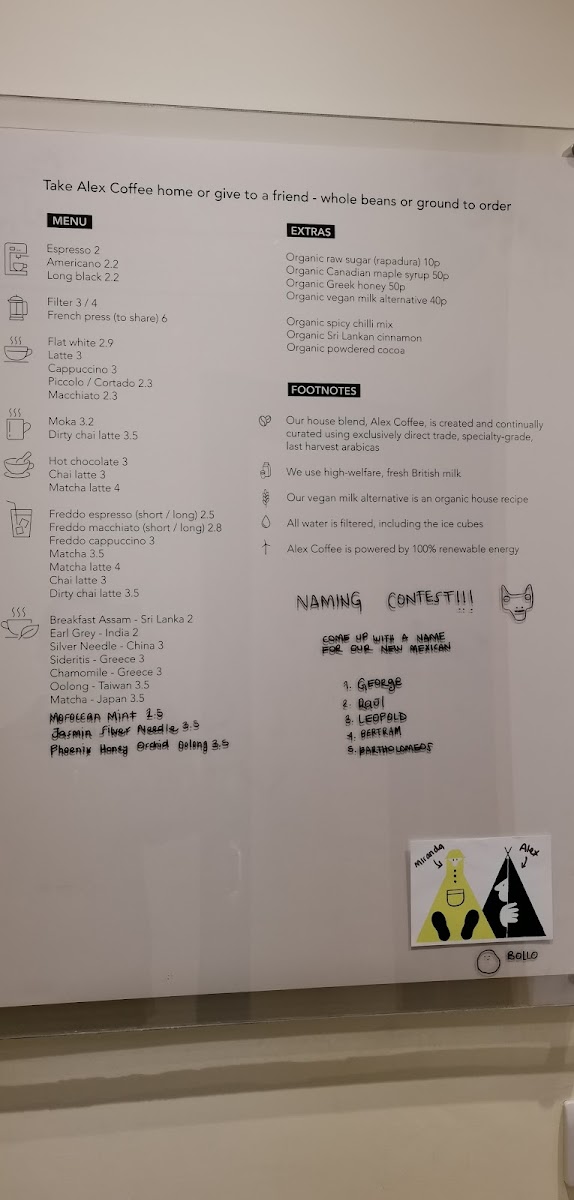 Take Alex Coffee home or give to a friend - whole beans or ground to order
MENU
Espresso 2
Americano 2.2
Long black 2.2
Filter 3 / 4
French press (to share) 6
Flat white 2.9
Latte 3
Cappuccino 3
Piccolo / Cortado 2.3
Macchiato 2.3
Moka 3.2
Dirty chai latte 3.5
Hot chocolate 3
Chai latte 3
Matcha latte 4
Freddo espresso (short / long) 2.5
Freddo macchiato (short / long) 2.8
Freddo cappuccino 3
Matcha 3.5
Matcha latte 4
Chai latte 3
Dirty chai latte 3.5
Breakfast Assam - Sri Lanka 2
Earl Grey - India 2
Silver Needle - China 3
Sideritis - Greece 3
Chamomile - Greece 3
Oolong - Taiwan 3.5
Matcha - Japan 3.5
Moroccan Mint 2.5
Jasmin Silver Needle 3.5
Phoenix Honey Orchid Oolong 3.5
EXTRAS
Organic raw sugar (rapadura) 10p
Organic Canadian maple syrup 50p
Organic Greek honey 50p
Organic vegan milk alternative 40p
Organic spicy chilli mix
Organic Sri Lankan cinnamon
Organic powdered cocoa
FOOTNOTES
Our house blend, Alex Coffee, is created and continually
curated using exclusively direct trade, specialty-grade,
last harvest arabicas
We use high-welfare, fresh British milk
Our vegan milk alternative is an organic house recipe
All water is filtered, including the ice cubes
Alex Coffee is powered by 100% renewable energy
NAMING CONTEST!!!
COME UP WITH A NAME
FOR OUR NEW MEXICAN
1. GEORGE
2. Raul
3. LEOPOLD
4. BERTRAM
5. BARTHOLOMEOS
Miranda
Alex
BOLLO